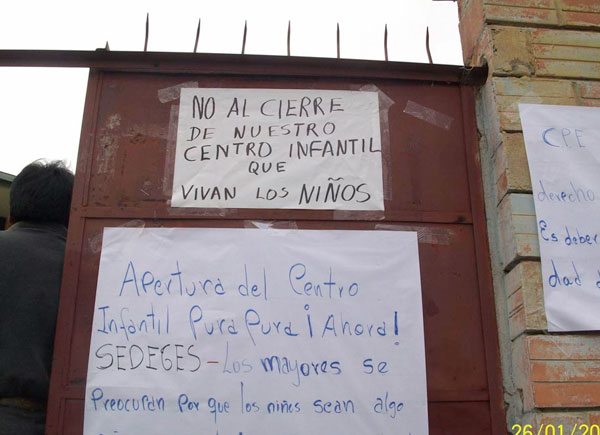 NO AL CIERRE
DE NUESTRO
CENTRO INFANTIL
QUE
VIVAN LOS NIÑOS
Apertura del Centro
Infantil Pura Pura ¡Ahora!
SEDEGES - Los mayores se
Preocupan Por que los niños sean algo
CPE
derecho
Es deber
dad
26/01/20